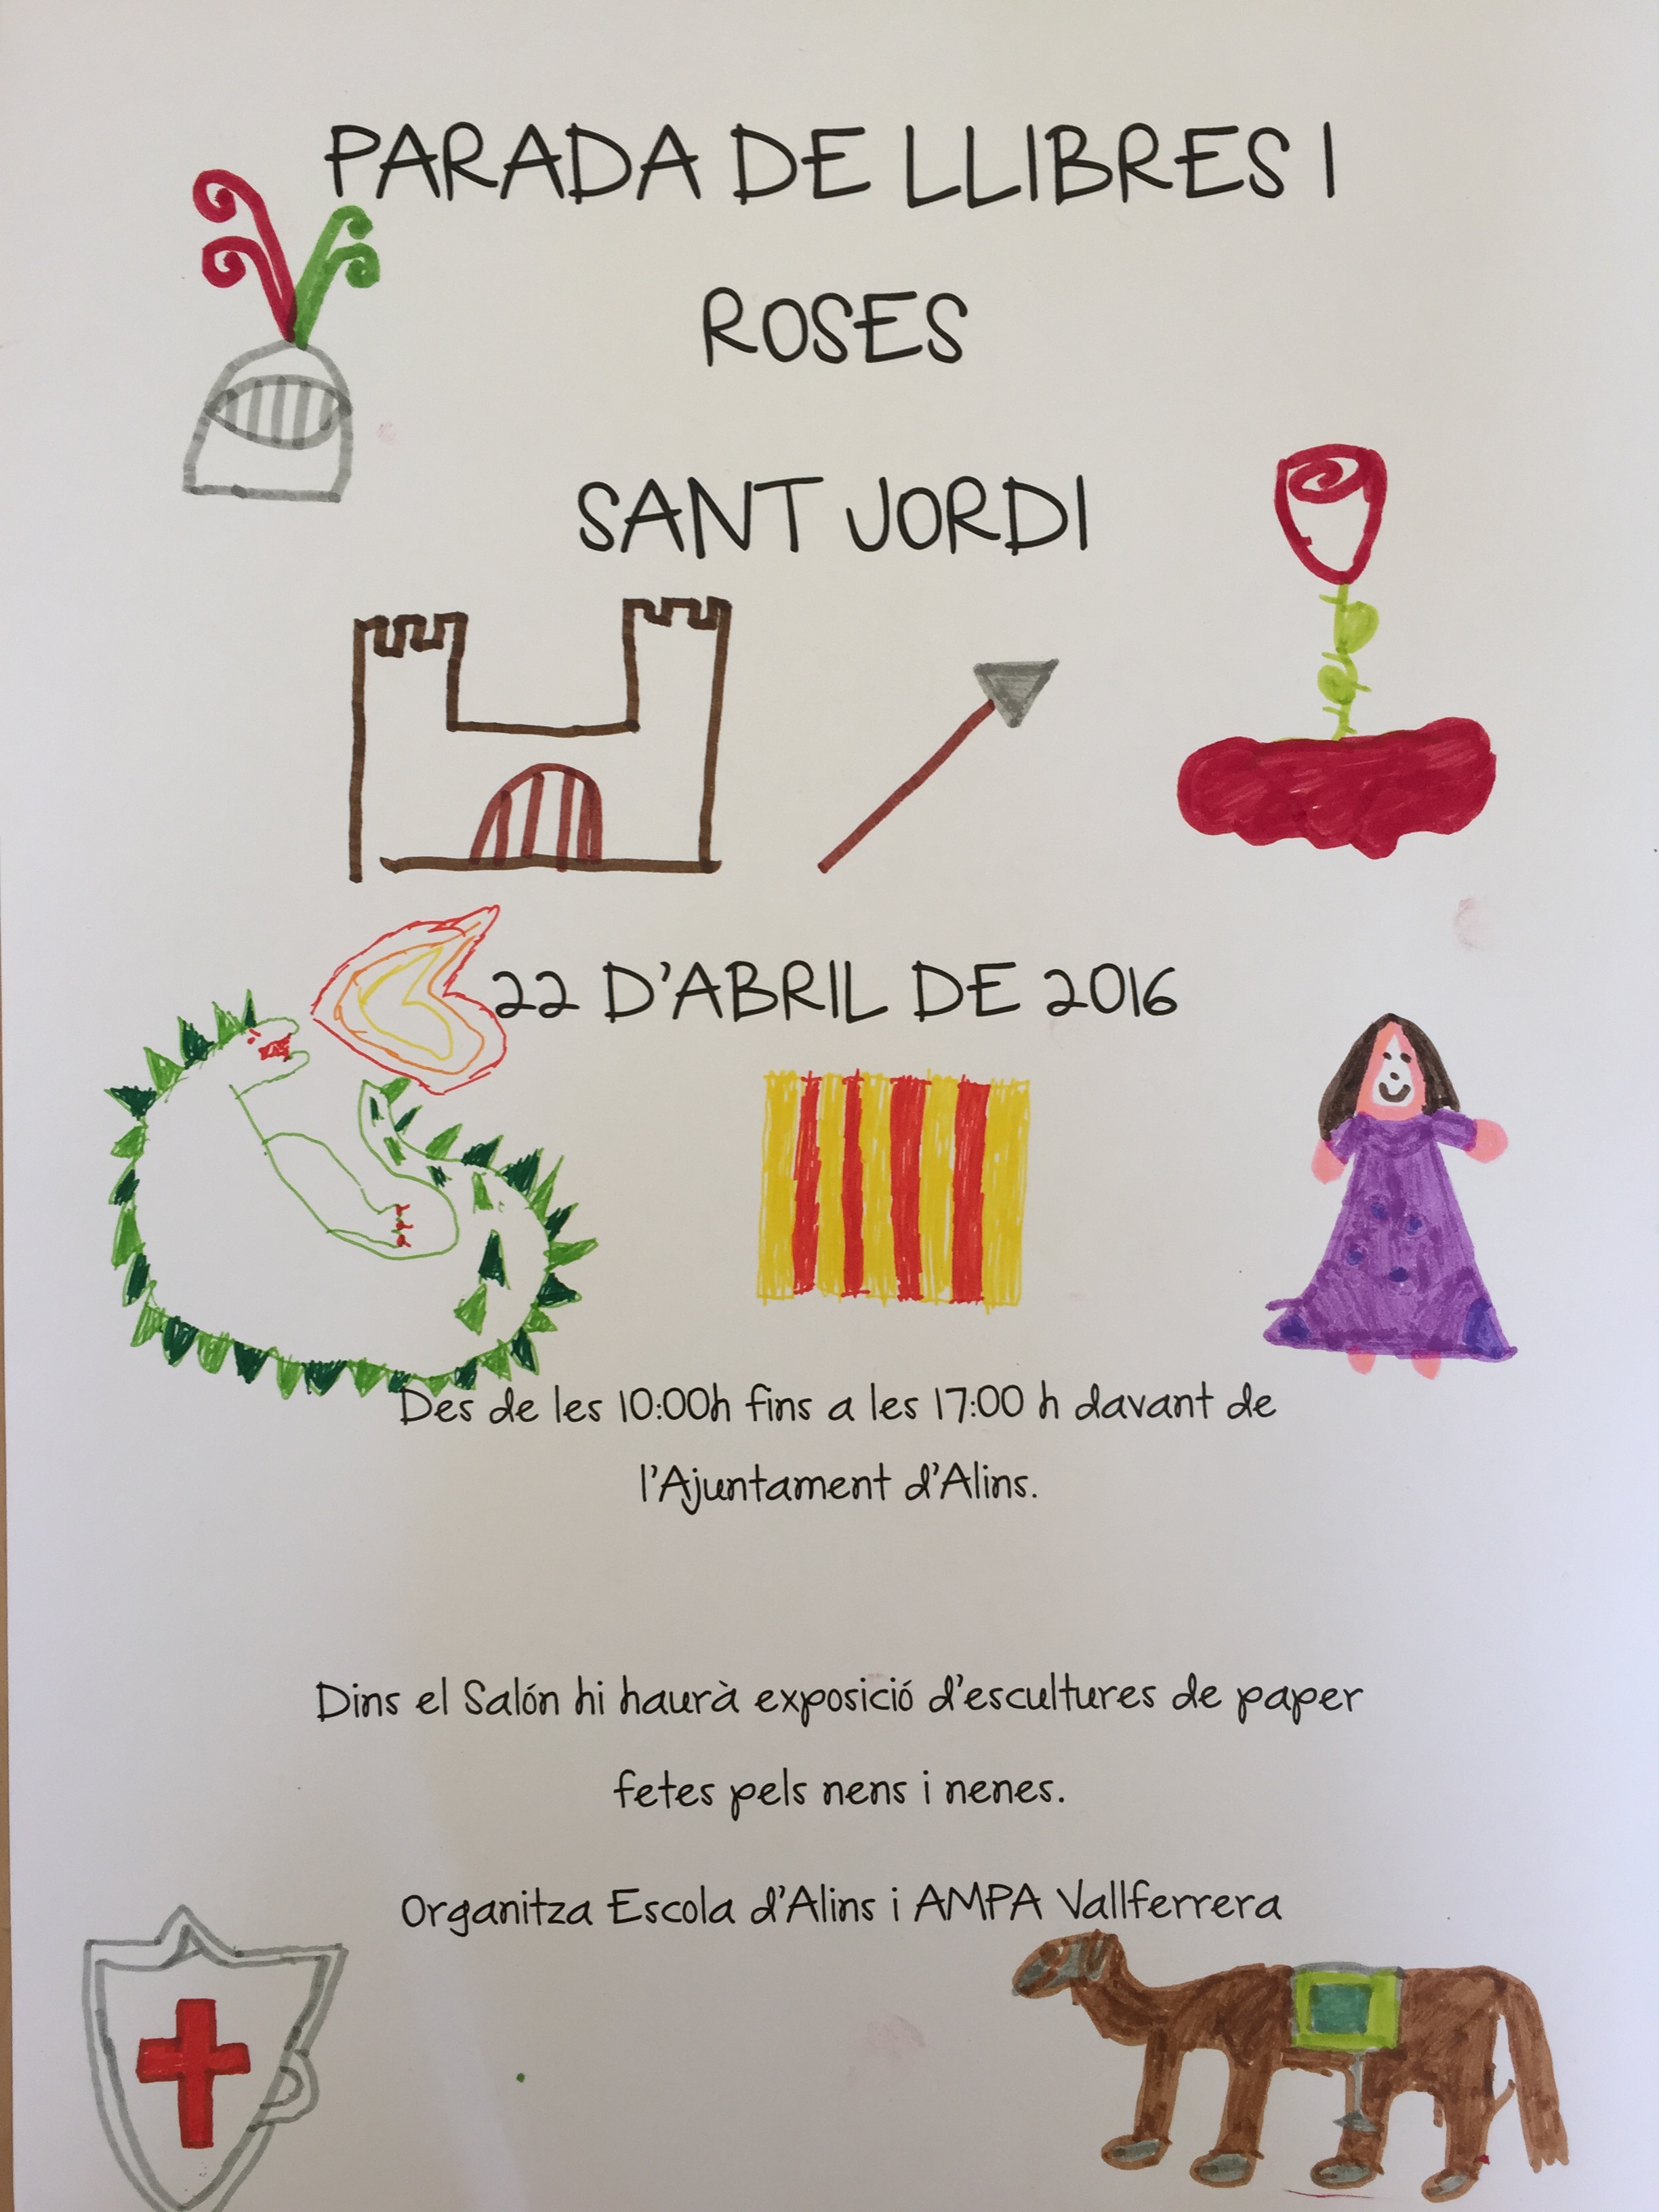 PARADA DE LLIBRES I
ROSES
SANT JORDI
22 D'ABRIL DE 2016
Des de les 10:00h fins a les 17:00 h davant de
l'Ajuntament d'Alins.
Dins el Salón hi haurà exposició d'escultures de paper
fetes pels nens i nenes.
Organitza Escola d'Alins i AMPA Vallferrera